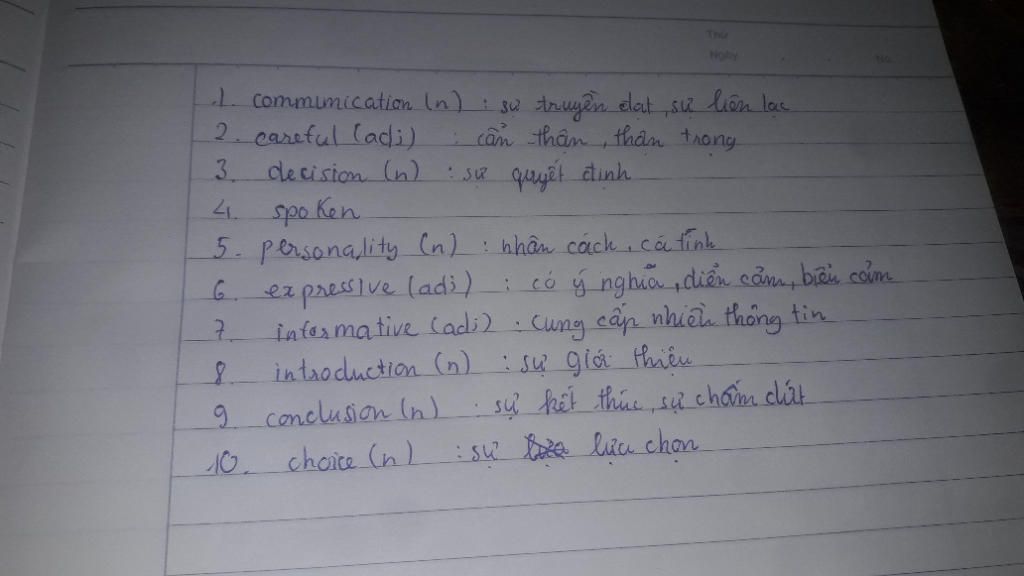 Thứ
Ngày . . No.
1. communication (n) : sự truyền đạt, sự liên lạc
2. careful (adj) : cẩn thận, thận trọng
3. decision (n) : sự quyết định
4. spoken
5. personality (n) : nhân cách, cá tính
6. expressive (adj) : có ý nghĩa, diển cảm, biểu cảm
7. informative (adj) : Cung cấp nhiều thông tin
8. introduction (n) : sự giới thiệu
9. conclusion (n) : sự kết thúc, sự chấm dứt
10. choice (n) : sự lựa chọn